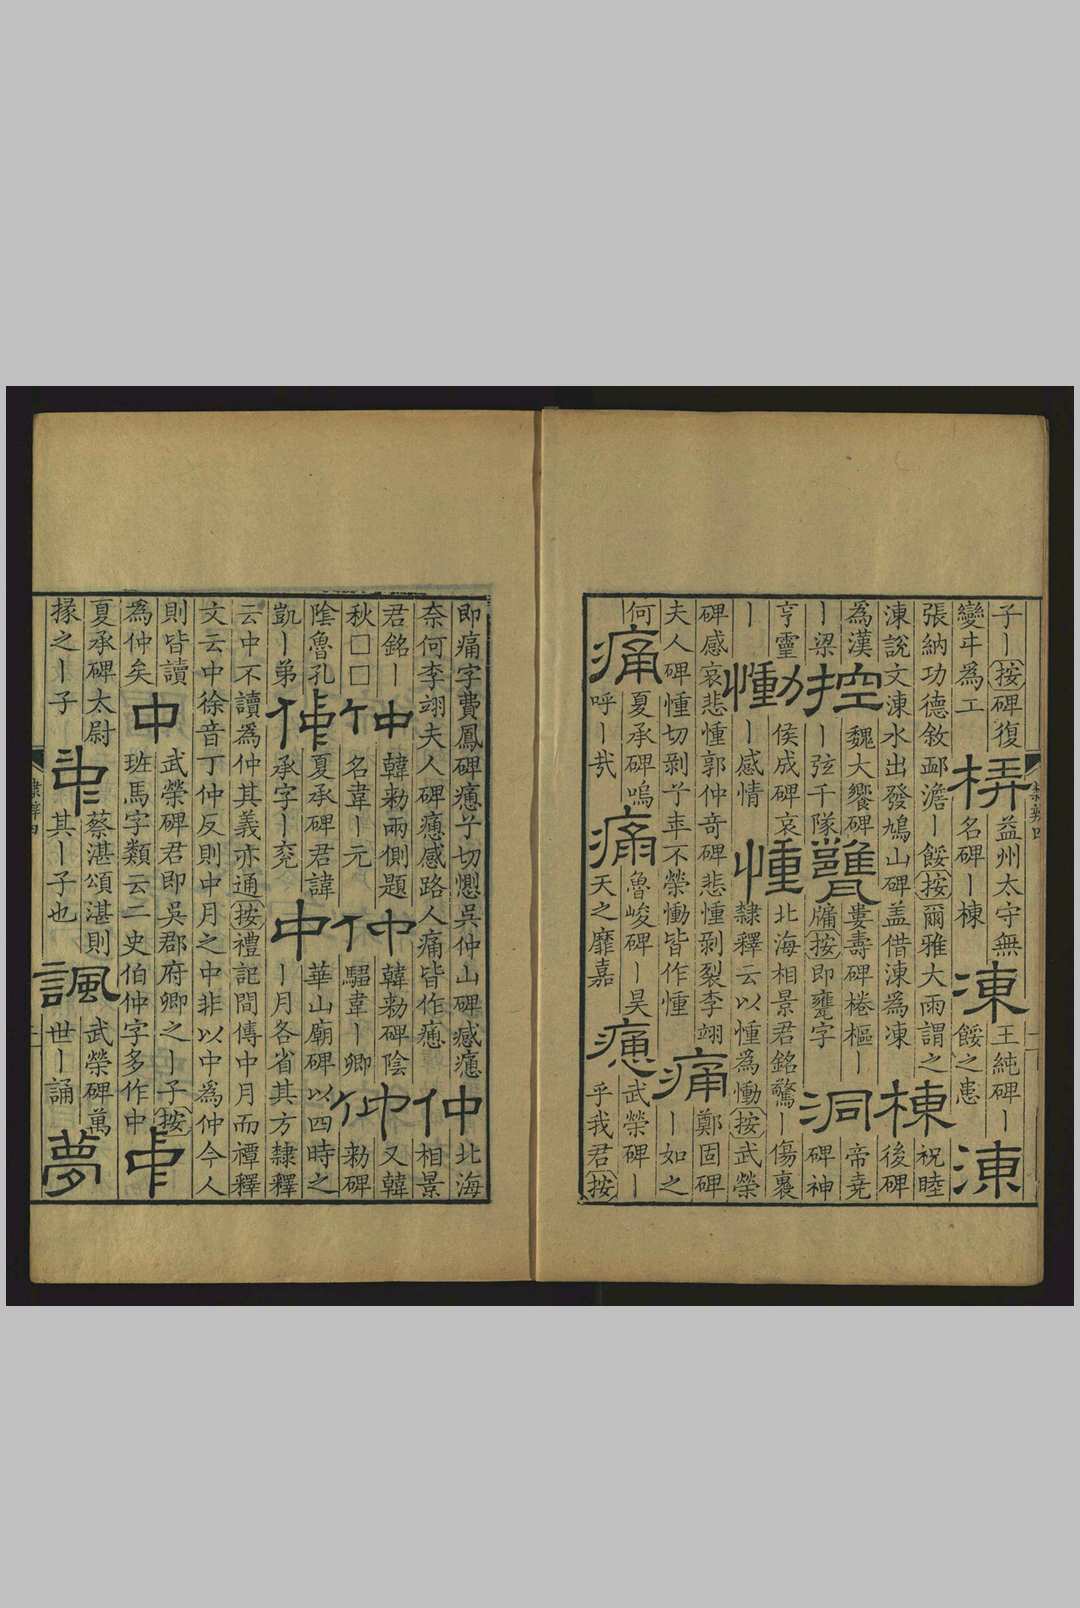 子丨按碑復
變㐄為工
梇
益州太守無
名碑丨棟
涷
王純碑丨
餒之患
涷
張納功德敘酈澹丨餒按爾雅大雨謂之
涷說文涷水出發鳩山碑蓋借涷為凍
棟
祝睦
後碑
為漢
丨梁
控
魏大饗碑
丨弦千隊
甕
婁壽碑棬樞丨
牖按即甕字
洞
帝堯
碑神
亨靈
丨
慟
侯成碑哀
丨感情
⿰忄重
北海相景君銘驚丨傷裹
隸釋云以⿰忄重為慟按武榮
碑感哀悲⿰忄重郭仲奇碑悲⿰忄重剥裂李翊
夫人碑⿰忄重切剥兮年不榮慟皆作⿰忄重
痛
鄭固碑
丨如之
何
痛
夏承碑嗚
呼丨哉
痛
魯峻碑丨昊
天之靡嘉
⿸疒恿
武榮碑丨
乎我君按
即痛字費鳳碑⿸疒恿兮切懇吳仲山碑感⿸疒恿
柰何李翊夫人碑⿸疒恿感路人痛皆作⿸疒恿
仲
北海
相景
君銘丨
秋□□
仲
韓勑兩側題
名韋丨元
仲
韓勑碑陰
騶韋丨卿
仲
又韓
勑碑
陰魯孔
凱丨弟
仲
夏承碑君諱
承字丨兖
中
華山廟碑以四時之
丨月各省其方隸釋
云中不讀為仲其義亦通按禮記間傳中月而禫釋
文云中徐音丁仲反則中月之中非以中為仲今人
則皆讀
為仲矣
中
武榮碑君即吳郡府卿之丨子按
班馬字類云二史伯仲字多作中
中
夏承碑太尉
掾之丨子
中
蔡湛頌湛則
其丨子也
諷
武榮碑萬
世丨誦
夢